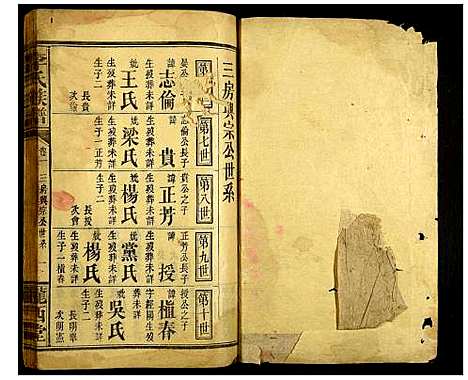 三房興宗公世系
第
第七世
第八世
第九世
第十世
晏公
諱志倫
生歿葬未詳
妣王氏
生歿葬未詳
生子二
長貴
次
志倫公長子
諱貴
生歿葬未詳
妣梁氏
生歿葬未詳
生子一正芳
貴公之子
諱正芳
生歿葬未詳
妣楊氏
生歿葬未詳
生子二
長授
次會
正芳公長子
諱授
生歿葬未詳
妣黨氏
生歿葬未詳
妣楊氏
生歿葬未詳
生子一植春
授公之子
諱植春
字經綸生歿
葬未詳
妣吳氏
生歿葬未詳
生子二
長明章
次明憲
氏族譜
卷
三房興宗公世系
一
隴西堂